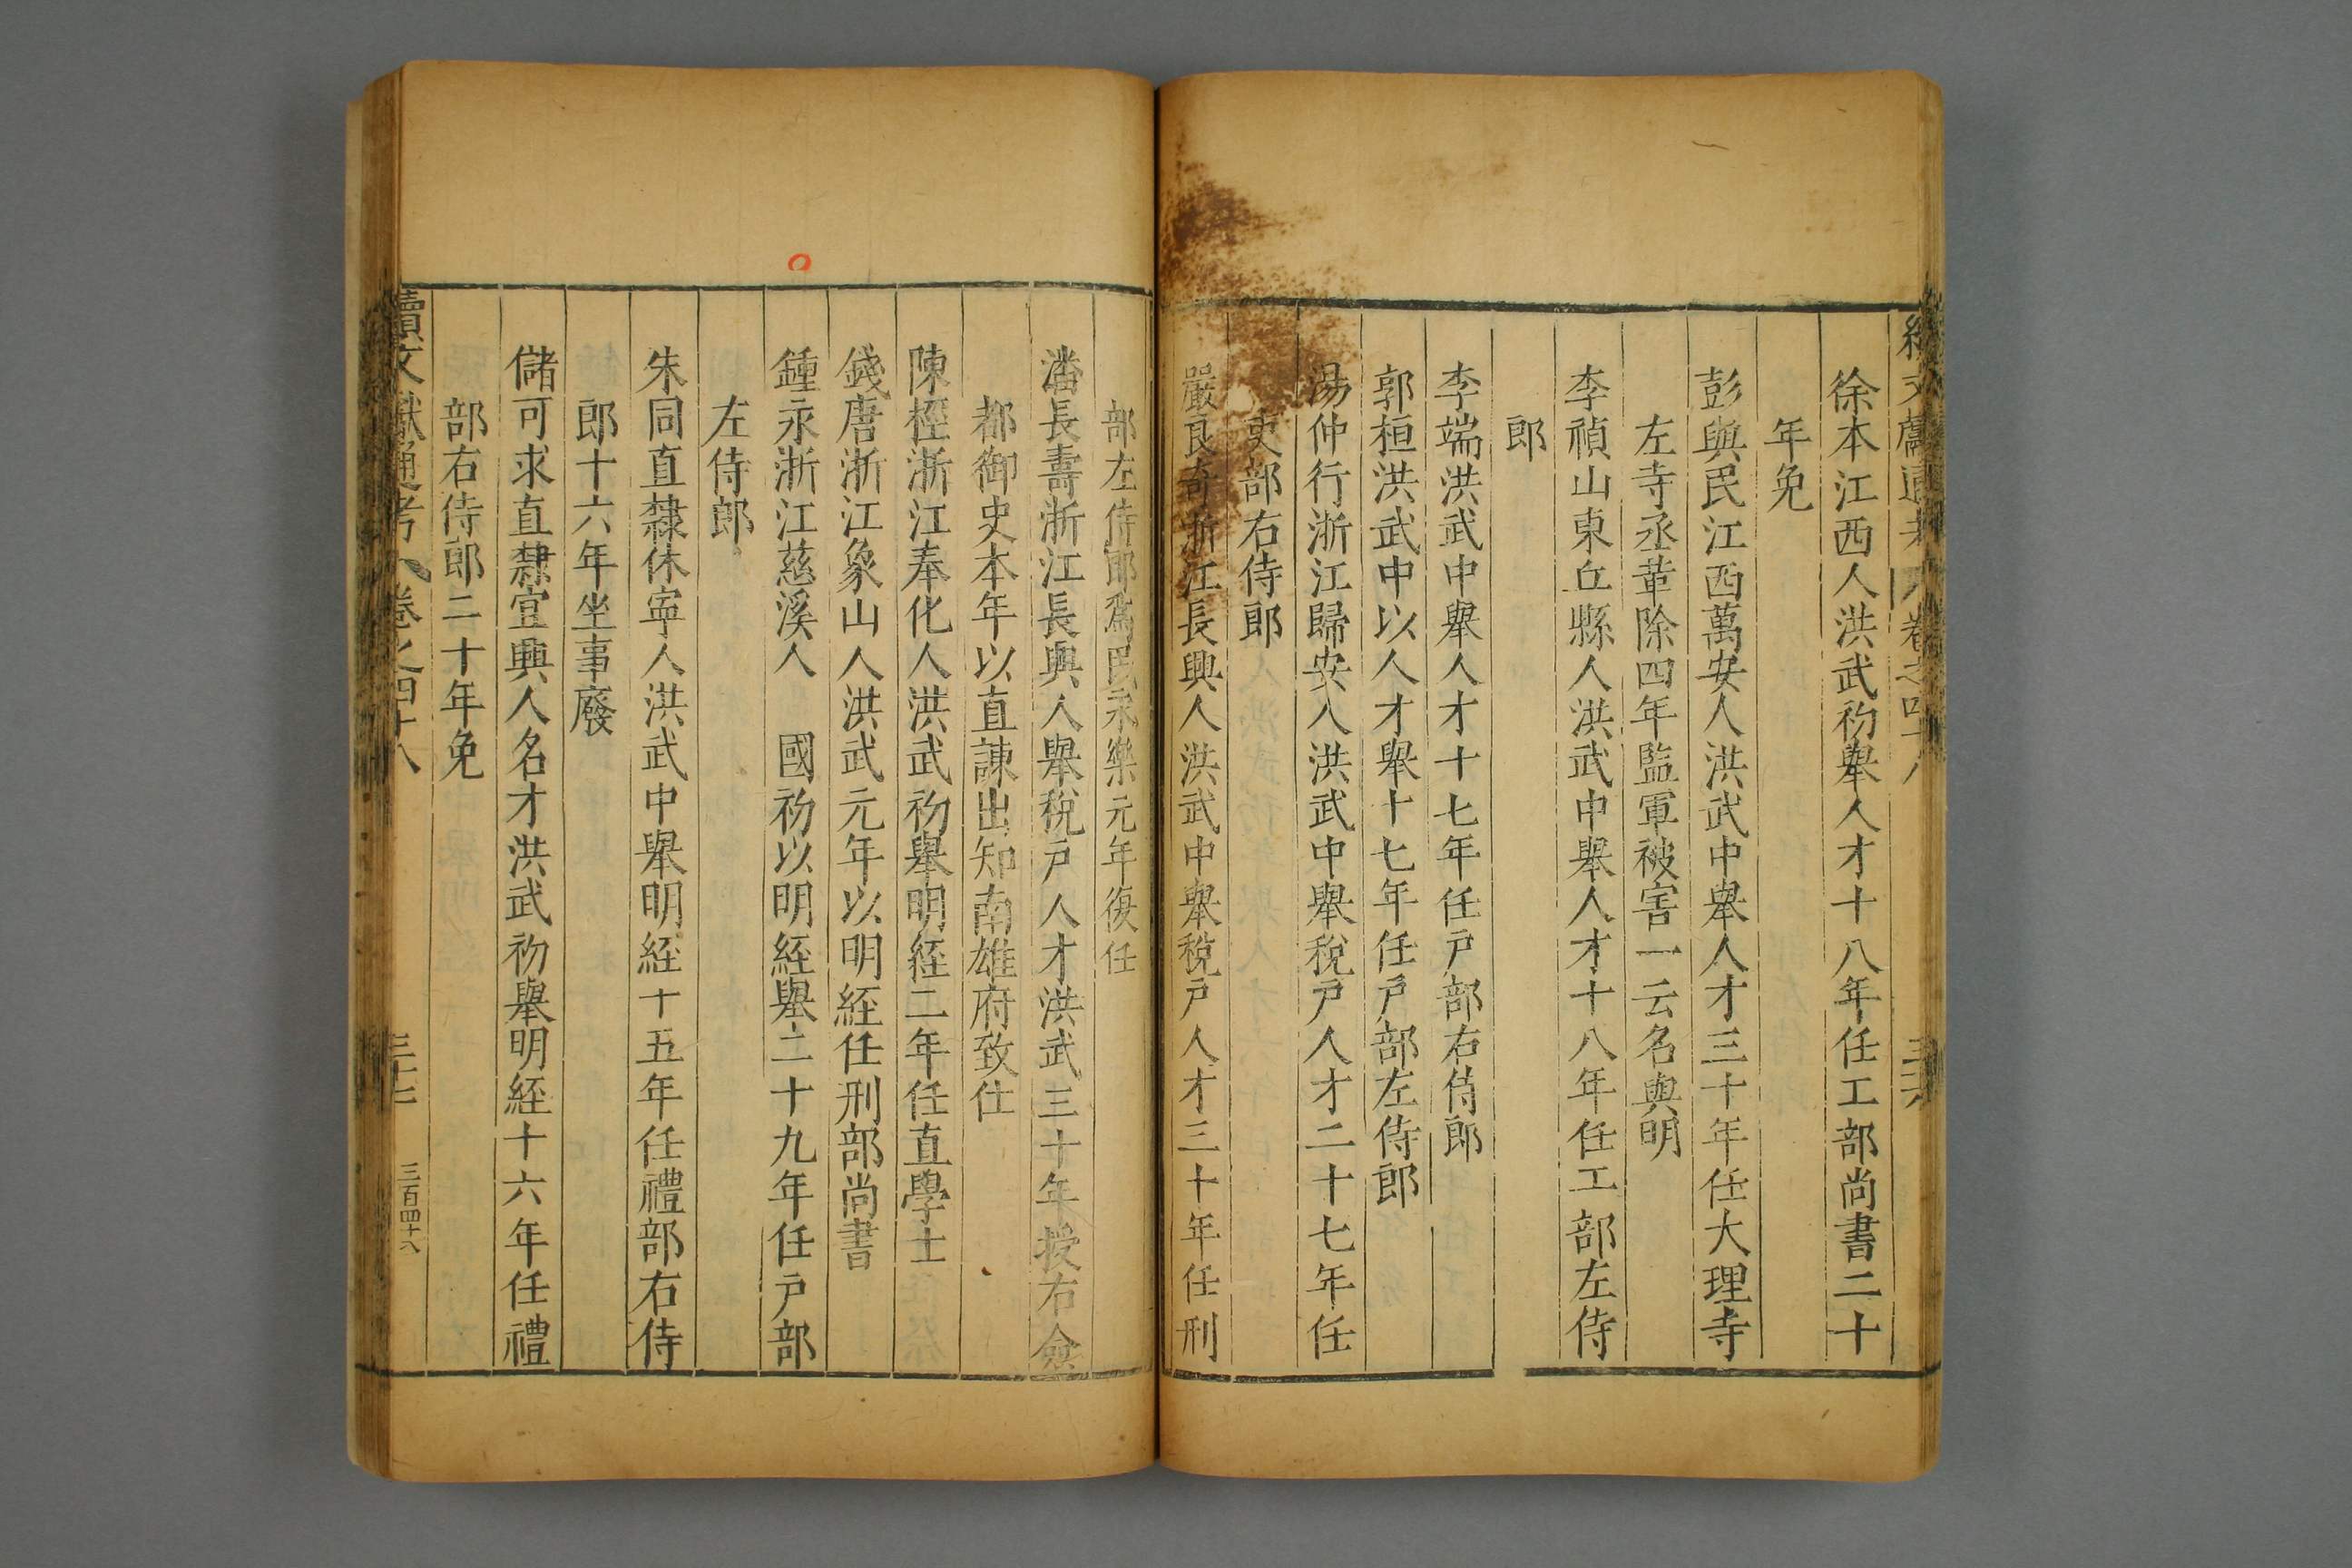 徐本江西人洪武初舉人才十八年任工部尚書二十
年免
彭與民江西萬安人洪武中舉人才三十年任大理寺
左寺丞革除四年監軍被害一云名與明
李禎山東丘縣人洪武中舉人才十八年任工部左侍
郎
李端洪武中舉人才十七年任戶部右侍郎
郭桓洪武中以人才舉十七年任戶部左侍郎
湯仲行浙江歸安人洪武中舉稅戶人才二十七年任
吏部右侍郎
嚴良奇浙江長興人洪武中舉稅戶人才三十年任刑
部左侍郎為民永樂元年復任
潘長壽浙江長興人舉稅戶人才洪武三十年授右僉
都御史本年以直諫出知南雄府致仕
陳桱浙江奉化人洪武初舉明經二年任直學士
錢唐浙江象山人洪武元年以明經任刑部尚書
鍾永浙江慈溪人 國初以明經舉二十九年任戶部
左侍郎
朱同直隸休寧人洪武中舉明經十五年任禮部右侍
郎十六年坐事廢
儲可求直隸宜興人名才洪武初舉明經十六年任禮
部右侍郎二十年免
續文獻通考 卷之四十八 三十七 三百四十八